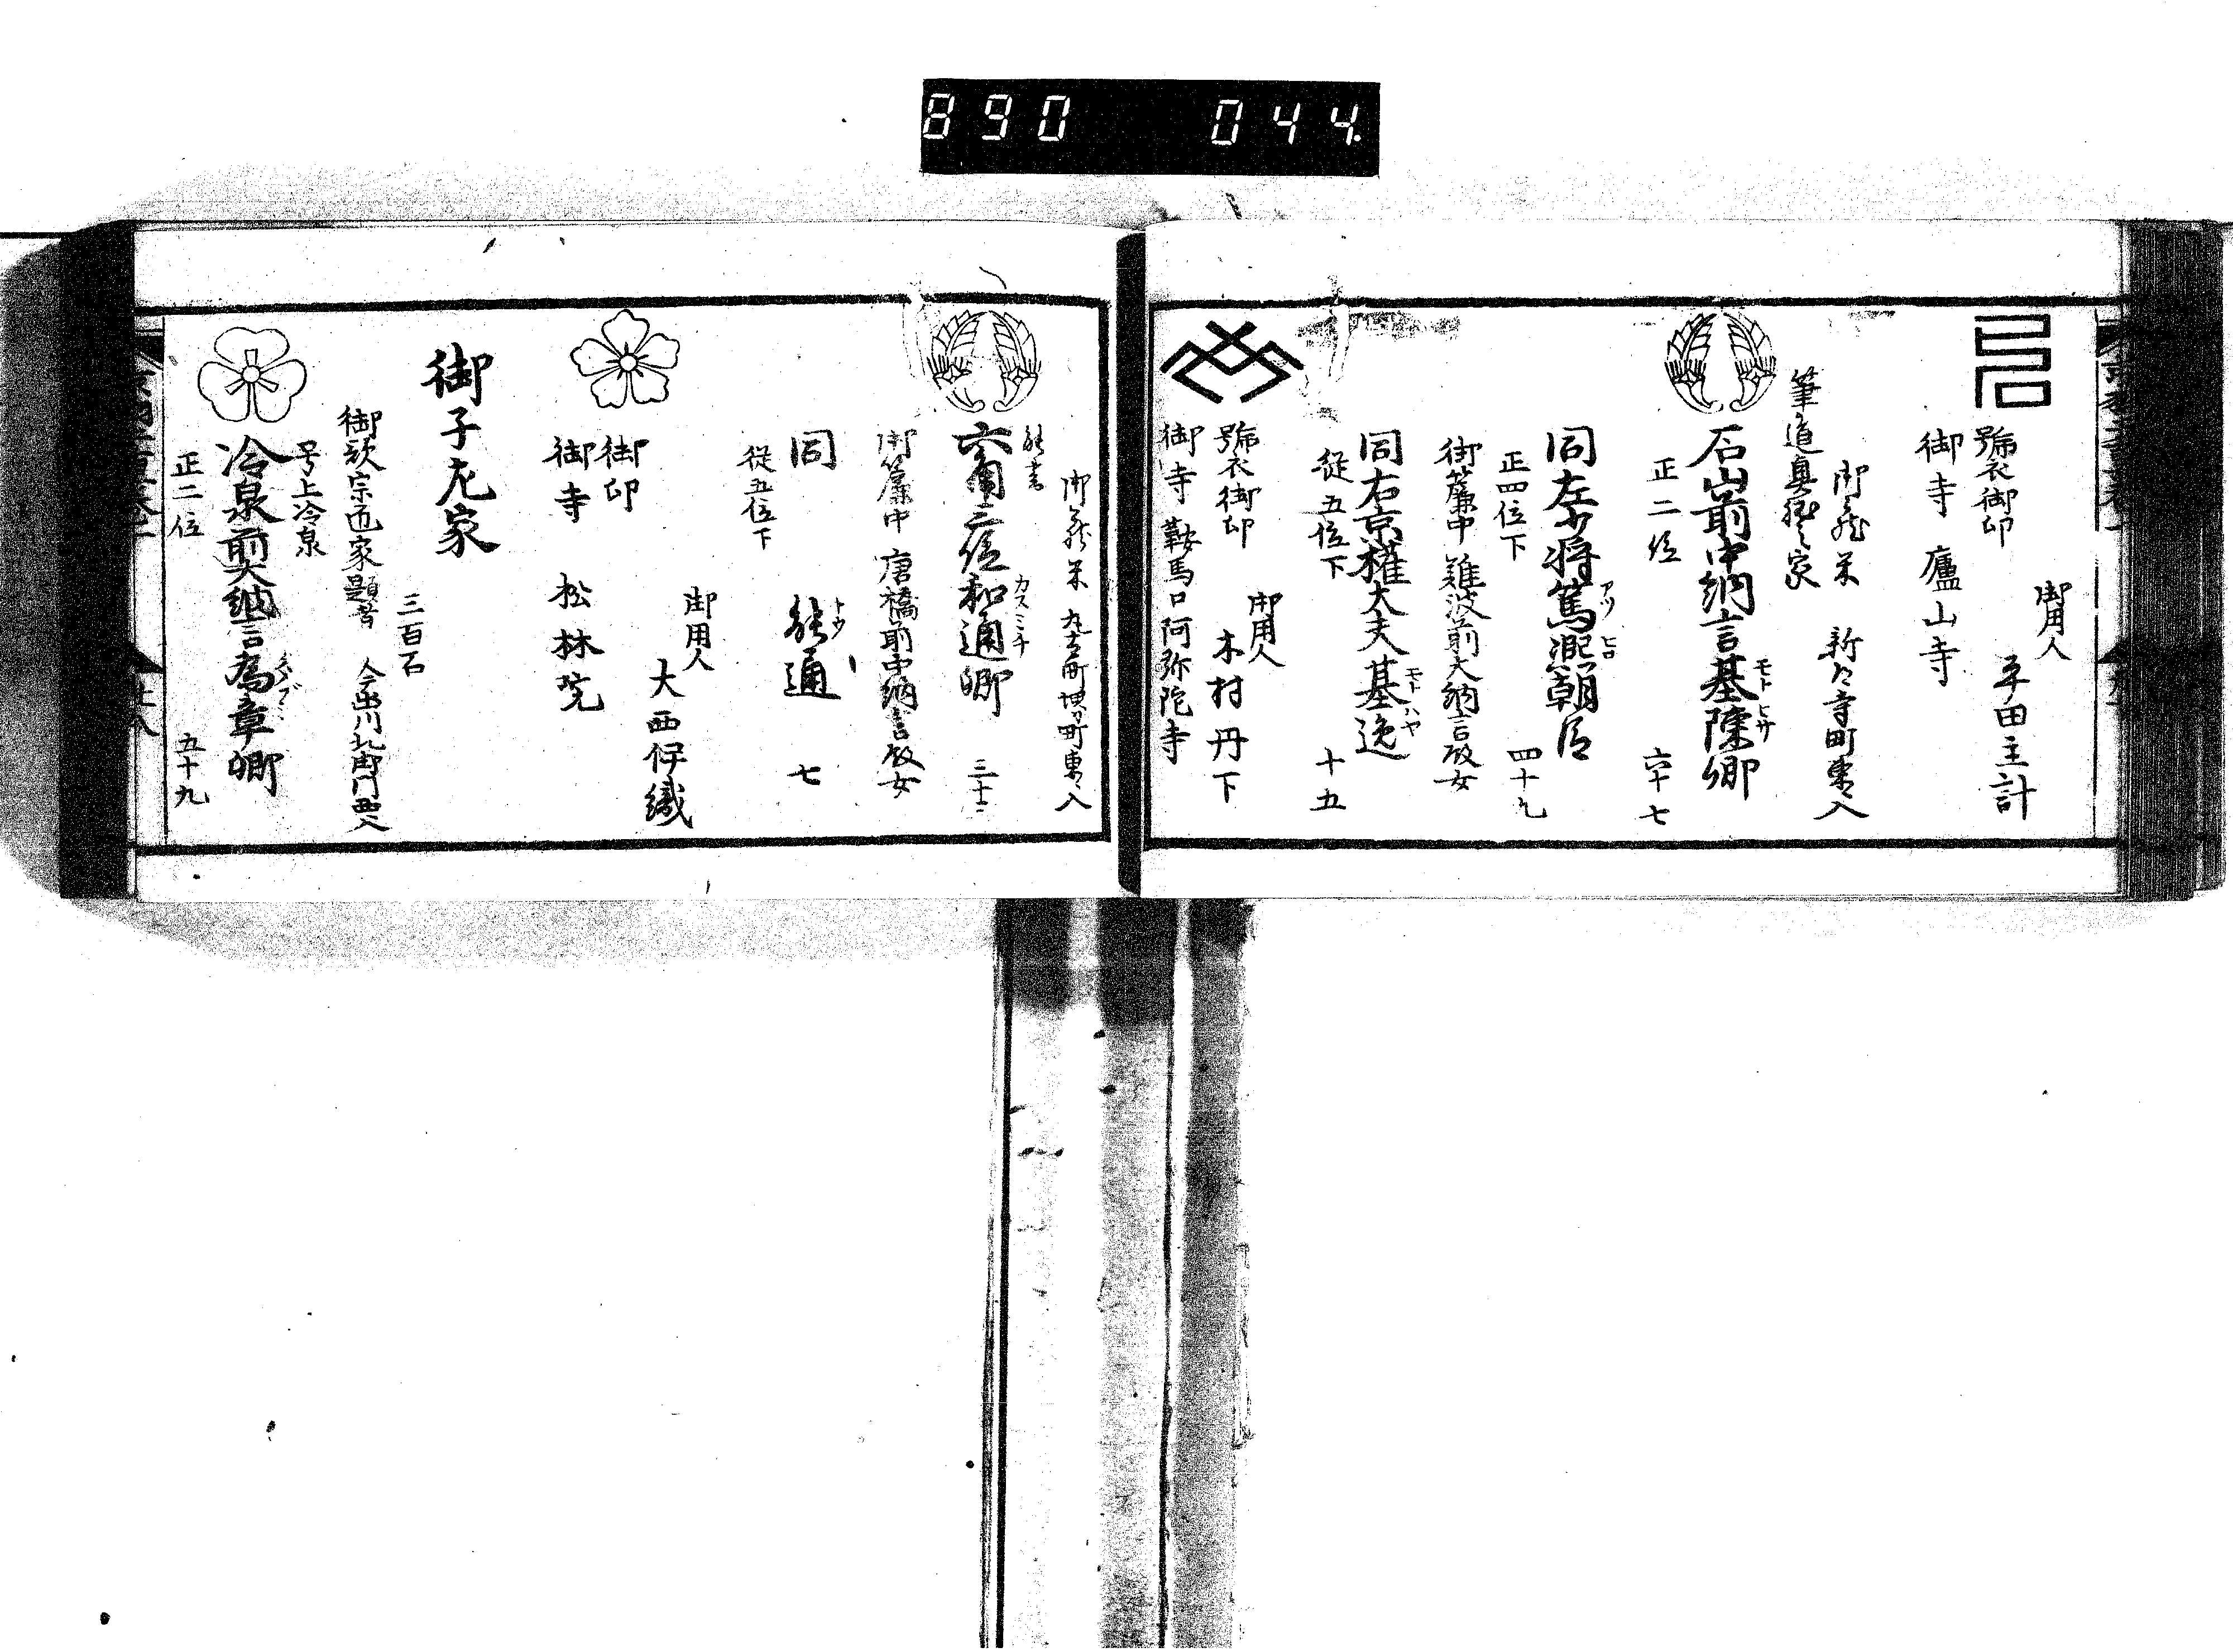 890 044
御用人
平田主計
號衣御印
御寺 廬山寺
御蔵米 新烏寺町東ヘ入
筆道奥儀之家
石山前中納言基陳卿
モトヒサ
正二位 六十七
同左少将篤凞朝臣
アツヒロ
正四位下 四十九
御簾中 難波前大納言殿女
同右京權大夫基逸
モトハヤ
從五位下 十五
御用人
木村丹下
號衣御印
御寺 鞍馬口阿弥陀寺
御蔵米
能書
六角三位和通卿
カスミチ
御簾中 唐橋前中納言殿女
同 能通
從五位下 七
御用人
大西伊織
御印
御寺 松林院
御子左家
三百石
御歌宗匠家 今出川北御門西ヘ入
号上冷泉
冷泉前大納言為章卿
正二位 五十九